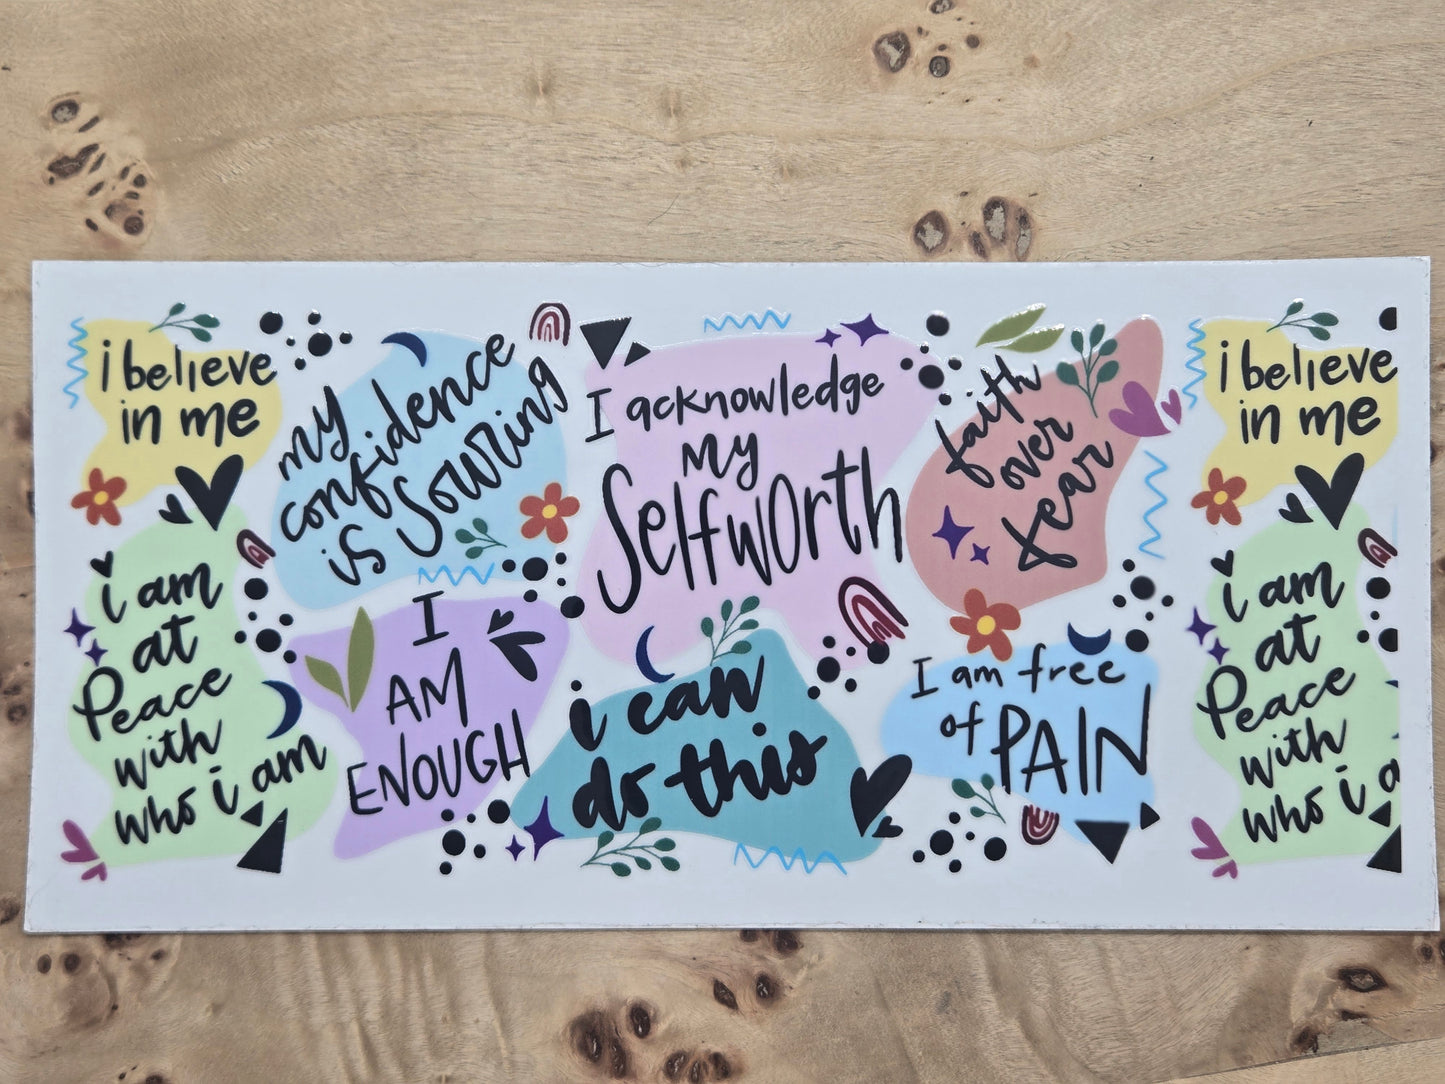 i believe
in me
my
confidence
is Sowring
I acknowledge
my
Selfworth
faith
over
fear
i believe
in me
i am
at
Peace
with
who i am
I
AM
ENOUGH
i can
do this
I am free
of PAIN
i am
at
Peace
with
who i a